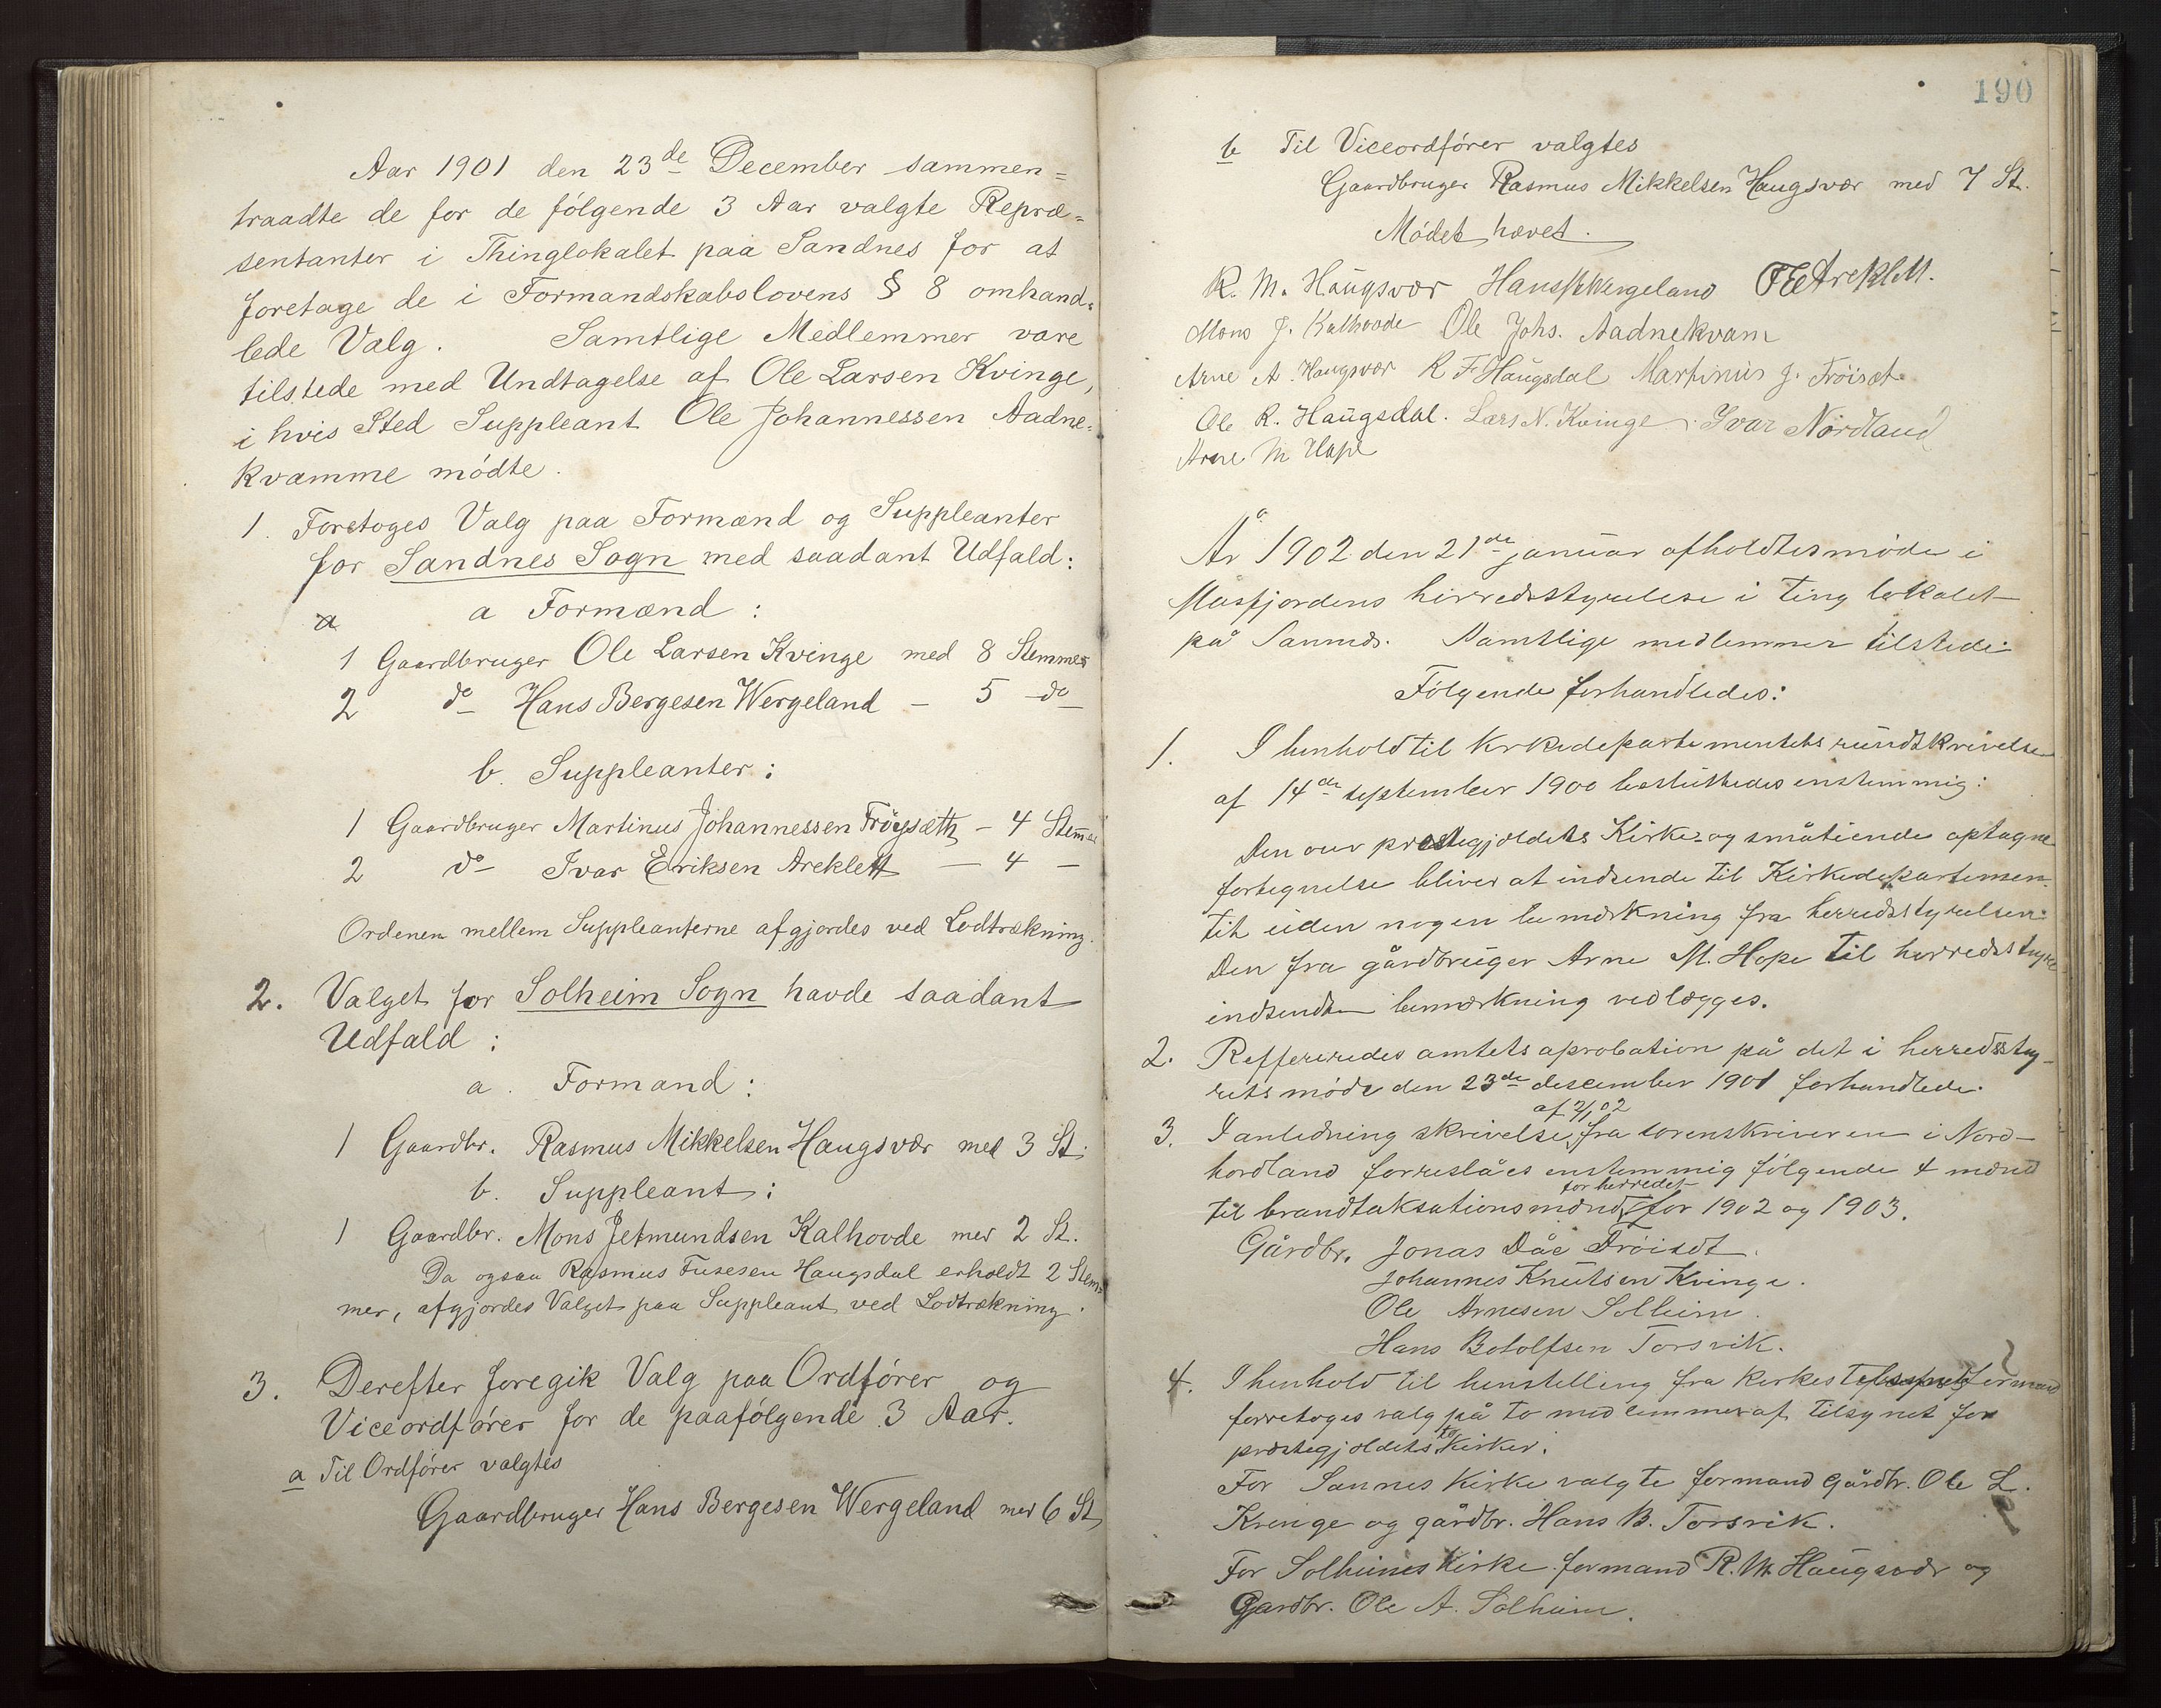 Aar 1901 den 23de December sammen=
traadte de for de følgende 3 Aar valgte Repræ=
sentanter i Thinglokalet paa Sandnes for at
foretage de i Formandskabslovens § 8 omhand=
lede Valg. Samtlige Medlemmer vare
tilstede med Undtagelse af Ole Larsen Kvinge,
i hvis Sted Suppleant Ole Johannessen Aadne=
kvamme mödte.
1. Foretoges Valg paa Formænd og Suppleanter
for Sandnes Sogn med saadant Udfald:
a a Formænd:
1 Gaardbruger Ole Larsen Kvinge med 8 Stemmer
2 do Hans Bergesen Wergeland – 5 do
b. Suppleanter:
1 Gaardbruger Martinus Johannessen Fröysæth – 4 Stemmer
2 do Ivar Eriksen Areklett – 4 –
Ordenen mellem Suppleanterne afgjordes ved Lodtrækning.
2. Valget for Solheim Sogn havde saadant
Udfald:
a. Formand:
1 Gaardbr. Rasmus Mikkelsen Haugsvær med 3 St.
b. Suppleant:
1 Gaardbr. Mons Jetmundsen Kalhovde med 2 St.
Da ogsaa Rasmus Fusesen Haugsdal erholdt 2 Stem=
mer, afgjordes Valget paa Suppleant ved Lodtrækning.
3. Derefter foregik Valg paa Ordfører og
Viceordfører for de paafølgende 3 Aar.
a Til Ordfører valgtes
Gaardbruger Hans Bergesen Wergeland med 6 St
190
b Til Viceordfører valgtes
Gaardbruger Rasmus Mikkelsen Haugsvær med 7 St.
Mödet hævet.
R. M. Haugsvær Hans B Wergeland I E Areklett.
Mons J. Kalhovde Ole Johs. Aadnekvam
Arne A. Haugsvær R F Haugsdal Martinus J. Fröisæt
Ole R. Haugsdal. Lars N. Kvinge. Ivar Nordland
Arne M Hope
År 1902 den 21de januar afholdtes møde i
Masfjordens herredsstyrelse i ting lokalet
på Sannes. Samtlige medlemmer tilstede.
Følgende forhandledes:
1. I henhold til Kirkedepartementets rundskrivelse
af 14de september 1900 besluttedes enstemmig:
Den over præstegjældets Kirke- og småtiende optagne
fortegnelse bliver at indsende til Kirkedepartemen-
tet uden nogen bemærkning fra herredsstyrelsen.
Den fra gårdbruger Arne M. Hope til herredsstyre
indsendte bemærkning vedlægges.
2. Reffereredes amtets aprobation på det i herredssty-
rets møde den 23de desember 1901 forhandlede.
af 2/1 02
3. I anledning skrivelse, fra sorenskriveren i Nord-
hordland forreslåes enstemmig følgende 4 mænd
for herredet
til brandtaksationsmænd for 1902 og 1903.
Gårdbr. Jonas Dåe Frøiset.
Johannes Knutsen Kvinge.
Ole Arnesen Solheim.
Hans Botolfsen Torsvik.
4. I henhold til henstilling fra kirkestilsynets formand
forretoges valg på to medlemmer af tilsynet for
to
præstegjældets kirker.
For Sannes Kirke valgte formand gårdbr. Ole L.
Kvinge og gårdbr. Hans B. Torsvik.
For Solheims Kirke formand R. M. Haugsvær og
Gardbr. Ole A. Solheim.